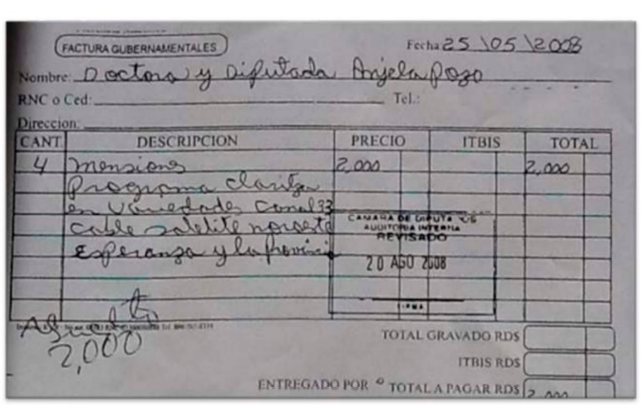 FACTURA GUBERNAMENTALES
Fecha 25 \05 \2008
Nombre: Doctora y Diputada Anjela Pozo
RNC o Ced: Tel.:
Direccion:
CANT. DESCRIPCION PRECIO ITBIS TOTAL
4 mensiones 2,000 2,000
Programa claritza
en Variedades Canal 33
cable satelite noroeste
Esperanza y la provincia
CAMARA DE DIPUTADOS
AUDITORIA INTERNA
REVISADO
20 AGO 2008
FIRMA
2,000
TOTAL GRAVADO RD$
ITBIS RD$
ENTREGADO POR TOTAL A PAGAR RD$ 2,000